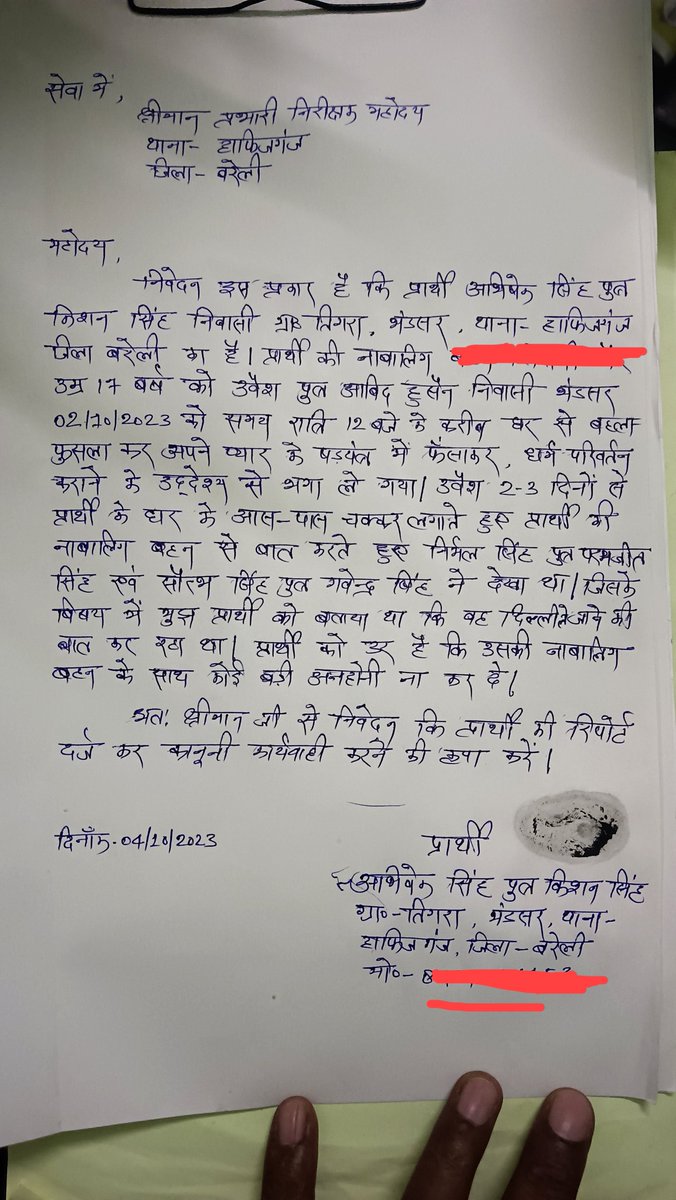 सेवा में,
श्रीमान प्रभारी निरीक्षक महोदय
थाना- हाफिजगंज
जिला- बरेली
महोदय,
निवेदन इस प्रकार है कि प्रार्थी अभिषेक सिंह पुत्र
किशन सिंह निवासी ग्रा० तिगरा, भंडसर, थाना- हाफिजगंज
जिला बरेली का है। प्रार्थी की नाबालिग
उम्र 17 बर्ष को उवैश पुत्र आबिद हुसैन निवासी भंडसर
02/10/2023 को समय रात्रि 12 बजे के करीब घर से बहला
फुसला कर अपने प्यार के षडयंत्र में फँसाकर, धर्म परिवर्तन
कराने के उद्देश्य से भगा ले गया। उवैश 2-3 दिनों से
प्रार्थी के घर के आस-पास चक्कर लगाते हुए प्रार्थी की
नाबालिग बहन से बात करते हुए निर्मल सिंह पुत्र परमजीत
सिंह एवं सौरभ सिंह पुत्र गवेन्द्र सिंह ने देखा था। जिसके
बिषय में मुझ प्रार्थी को बताया था कि वह दिल्ली ले जाने की
बात कर रहा था। प्रार्थी को डर है कि उसकी नाबालिग
बहन के साथ कोई बड़ी अनहोनी ना कर दे।
अतः श्रीमान जी से निवेदन कि प्रार्थी की रिपोर्ट
दर्ज कर कानूनी कार्यवाही करने की कृपा करें।
दिनाँक- 04/10/2023
प्रार्थी
अभिषेक सिंह पुत्र किशन सिंह
ग्रा०-तिगरा, भंडसर, थाना-
हाफिजगंज, जिला-बरेली
मो०-